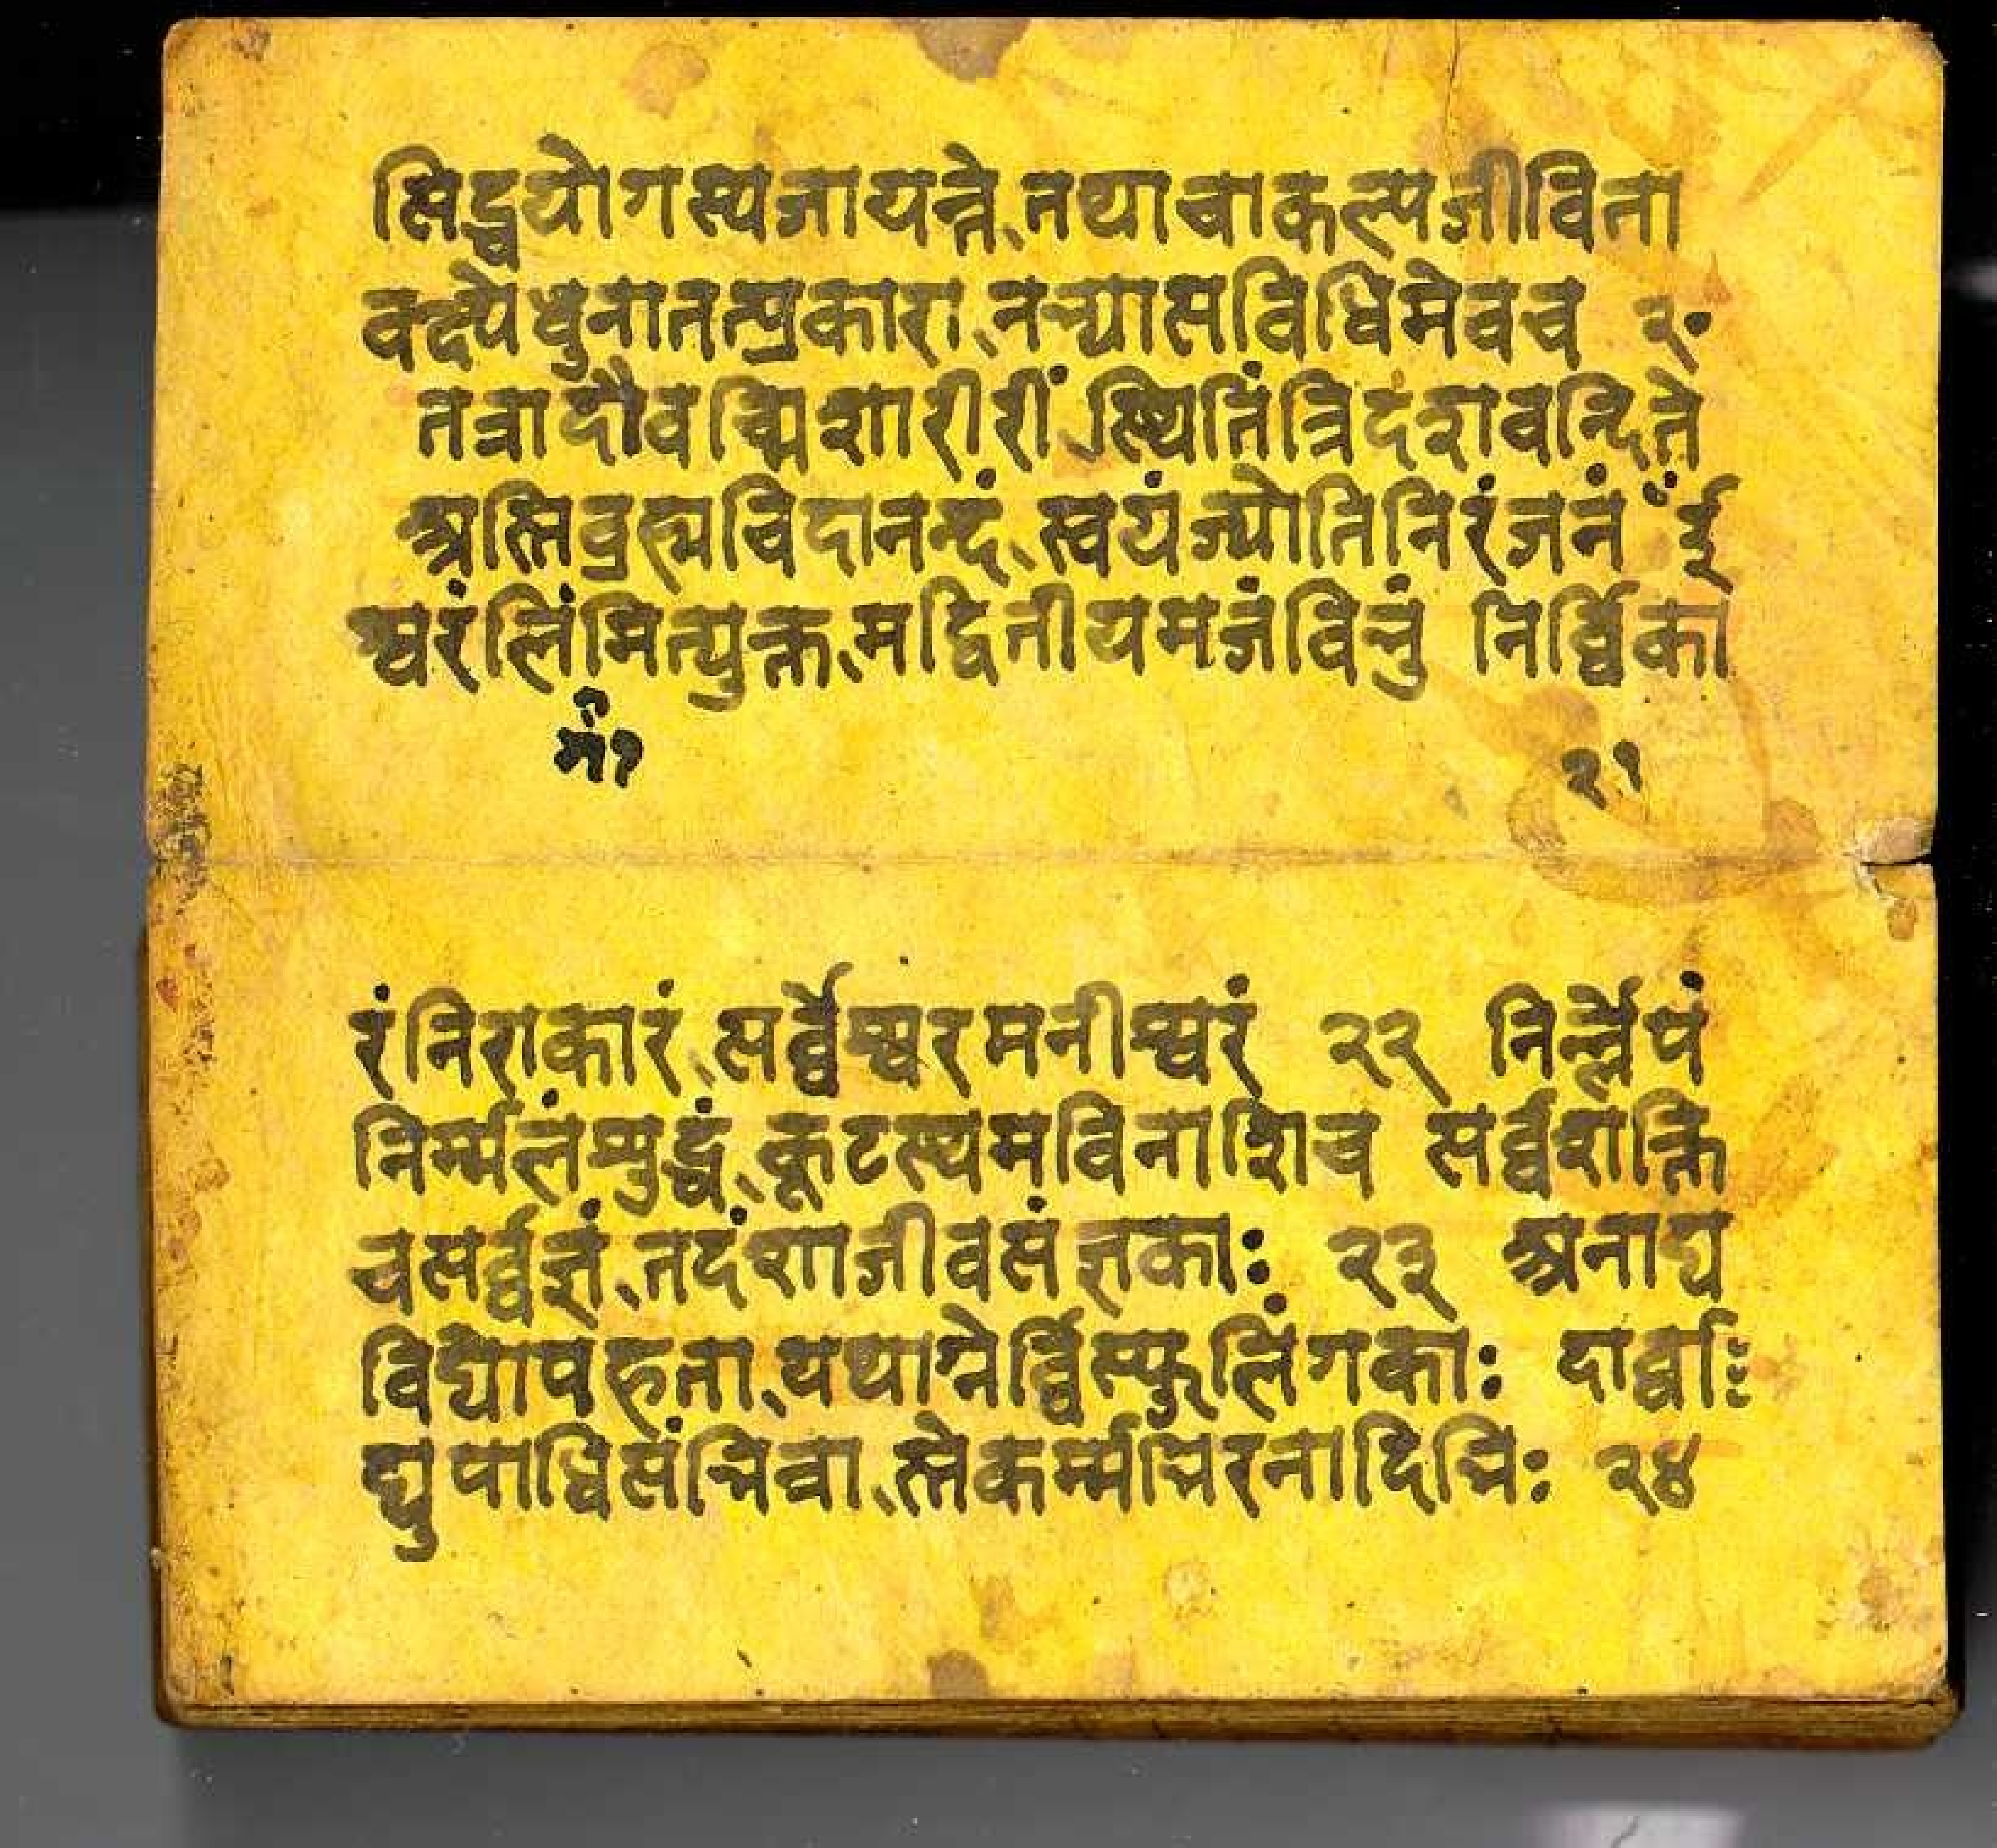 सिद्धयोगस्यजायन्ते तथाचाकल्पजीविता
वक्ष्येधुनातत्प्रकारा नन्यासविधिमेवच २०
तत्रादौवच्मिशारीरीं स्थितिंत्रिदशवन्दिते
अस्तिब्रह्मचिदानन्दं स्वयंज्योतिनिरंजनं ई
श्वरंलिंमित्युक्त मद्वितीयमजंविभुं निर्व्विका
गं१
२१
रंनिराकारं सर्व्वेश्वरमनीश्वरं २२ निर्ल्लेपं
निर्म्मलंशुद्धं कूटस्थमविनाशिच सर्व्वशक्ति
चसर्व्वज्ञं तदंशाजीवसंज्ञकाः २३ अनाद्य
विद्योपहता यथाग्नेर्व्विस्फुलिंगकाः दार्व्वा
द्युपाधिसंभिन्ना स्तेकर्म्मभिरनादिभिः २४